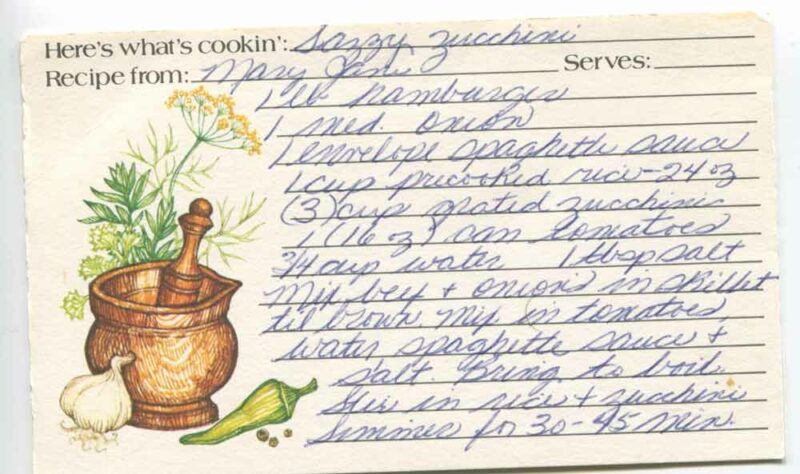 Here's what's cookin': Sazzy zucchini
Recipe from: Mary Jane Serves:
1 lb hamburger
1 med. onion
1 envelope spaghette sauce
1 cup precooked rice - 24 oz
(3) cup grated zucchini
1 (16 oz) can tomatoes
3/4 cup water 1 tbsp salt
Mix beef + onions in skillet
til brown. Mix in tomatoes,
water spaghette sauce +
salt. Bring to boil.
Stir in rice + zucchini
Simmer for 30-45 min.